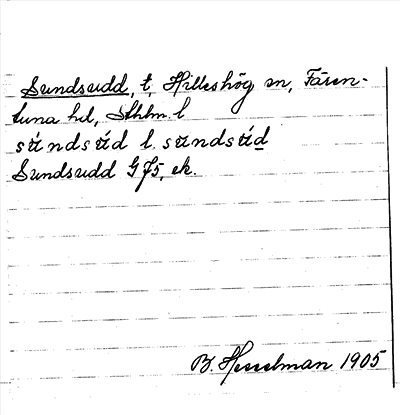 Sundsudd, t, Hilleshög sn, Fären-
tuna hd, Sthlm. l
súndsúd l. sundsúd
Sundsudd GJ5, ek.
B. Hesselman 1905